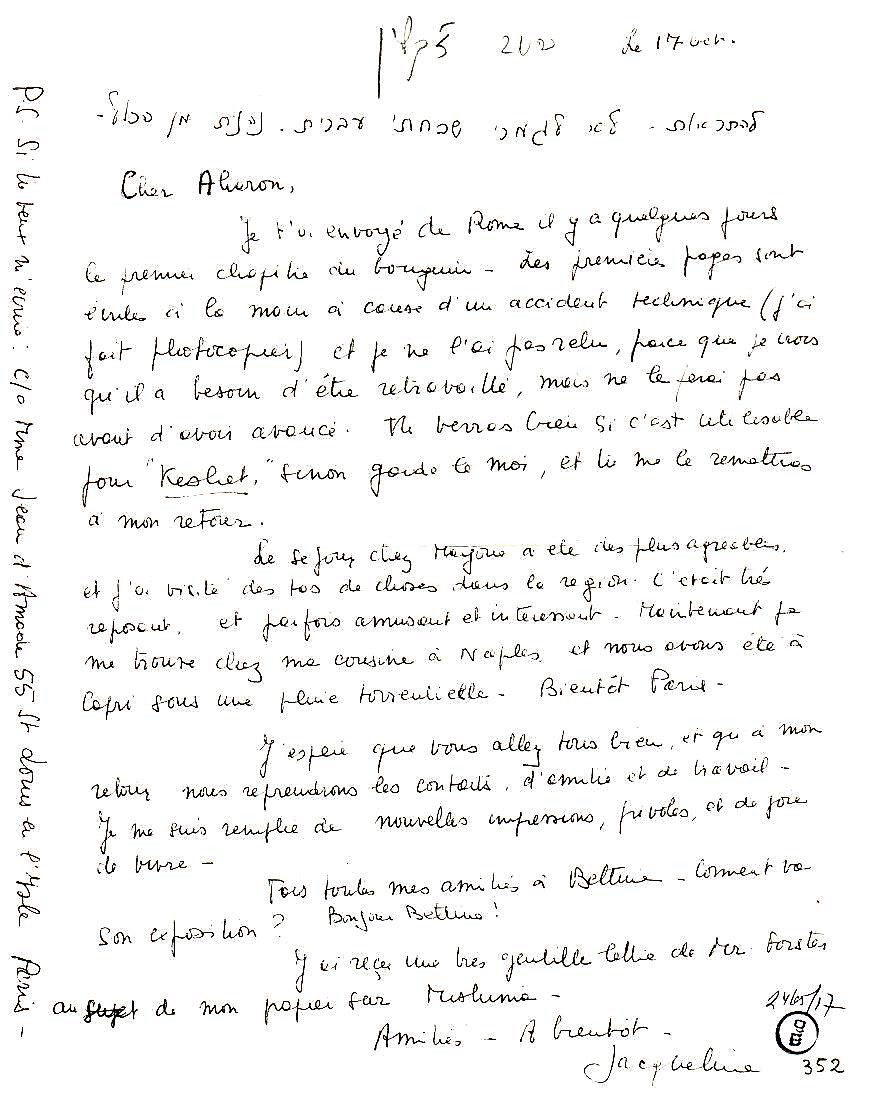 Le 17 oct.
להתראות - לא לגמרי שכחתי עברית.
Cher Aharon,
Je t'ai envoyé de Rome il y a quelques jours
le premier chapitre du bouquin - Les premières pages sont
écrites à la main à cause d'un accident technique (j'ai
fait photocopier) et je ne l'ai pas relu, parce que je crois
qu'il a besoin d'être retravaillé, mais ne le ferai pas
avant d'avoir avancé. Tu verras bien si c'est utilisable
pour "Keshet," sinon garde le moi, et tu me le remettras
à mon retour.
Le séjour chez a été des plus agréables,
et j'ai visité des tas de choses dans la région. C'était très
reposant, et parfois amusant et intéressant. Maintenant je
me trouve chez ma cousine à Naples, et nous avons été à
Capri sous une pluie torrentielle - Bientôt Paris -
J'espère que vous allez tous bien, et qu'à mon
retour nous reprendrons les contacts, d'amitié et de travail -
Je me suis remplie de nouvelles impressions, frivoles, et de joie
de vivre -
toutes mes amitiés à Bettina - Comment va
son exposition ? Bonjour Bettina !
J'ai reçu une très gentille lettre de Mr. Forster
au sujet de mon papier sur Mishima -
Amitiés - A bientôt -
Jacqueline
352
P.S. Si tu veux m'écrire : c/o Mme Jean d'Amade 55 St Louis en l'Isle Paris -